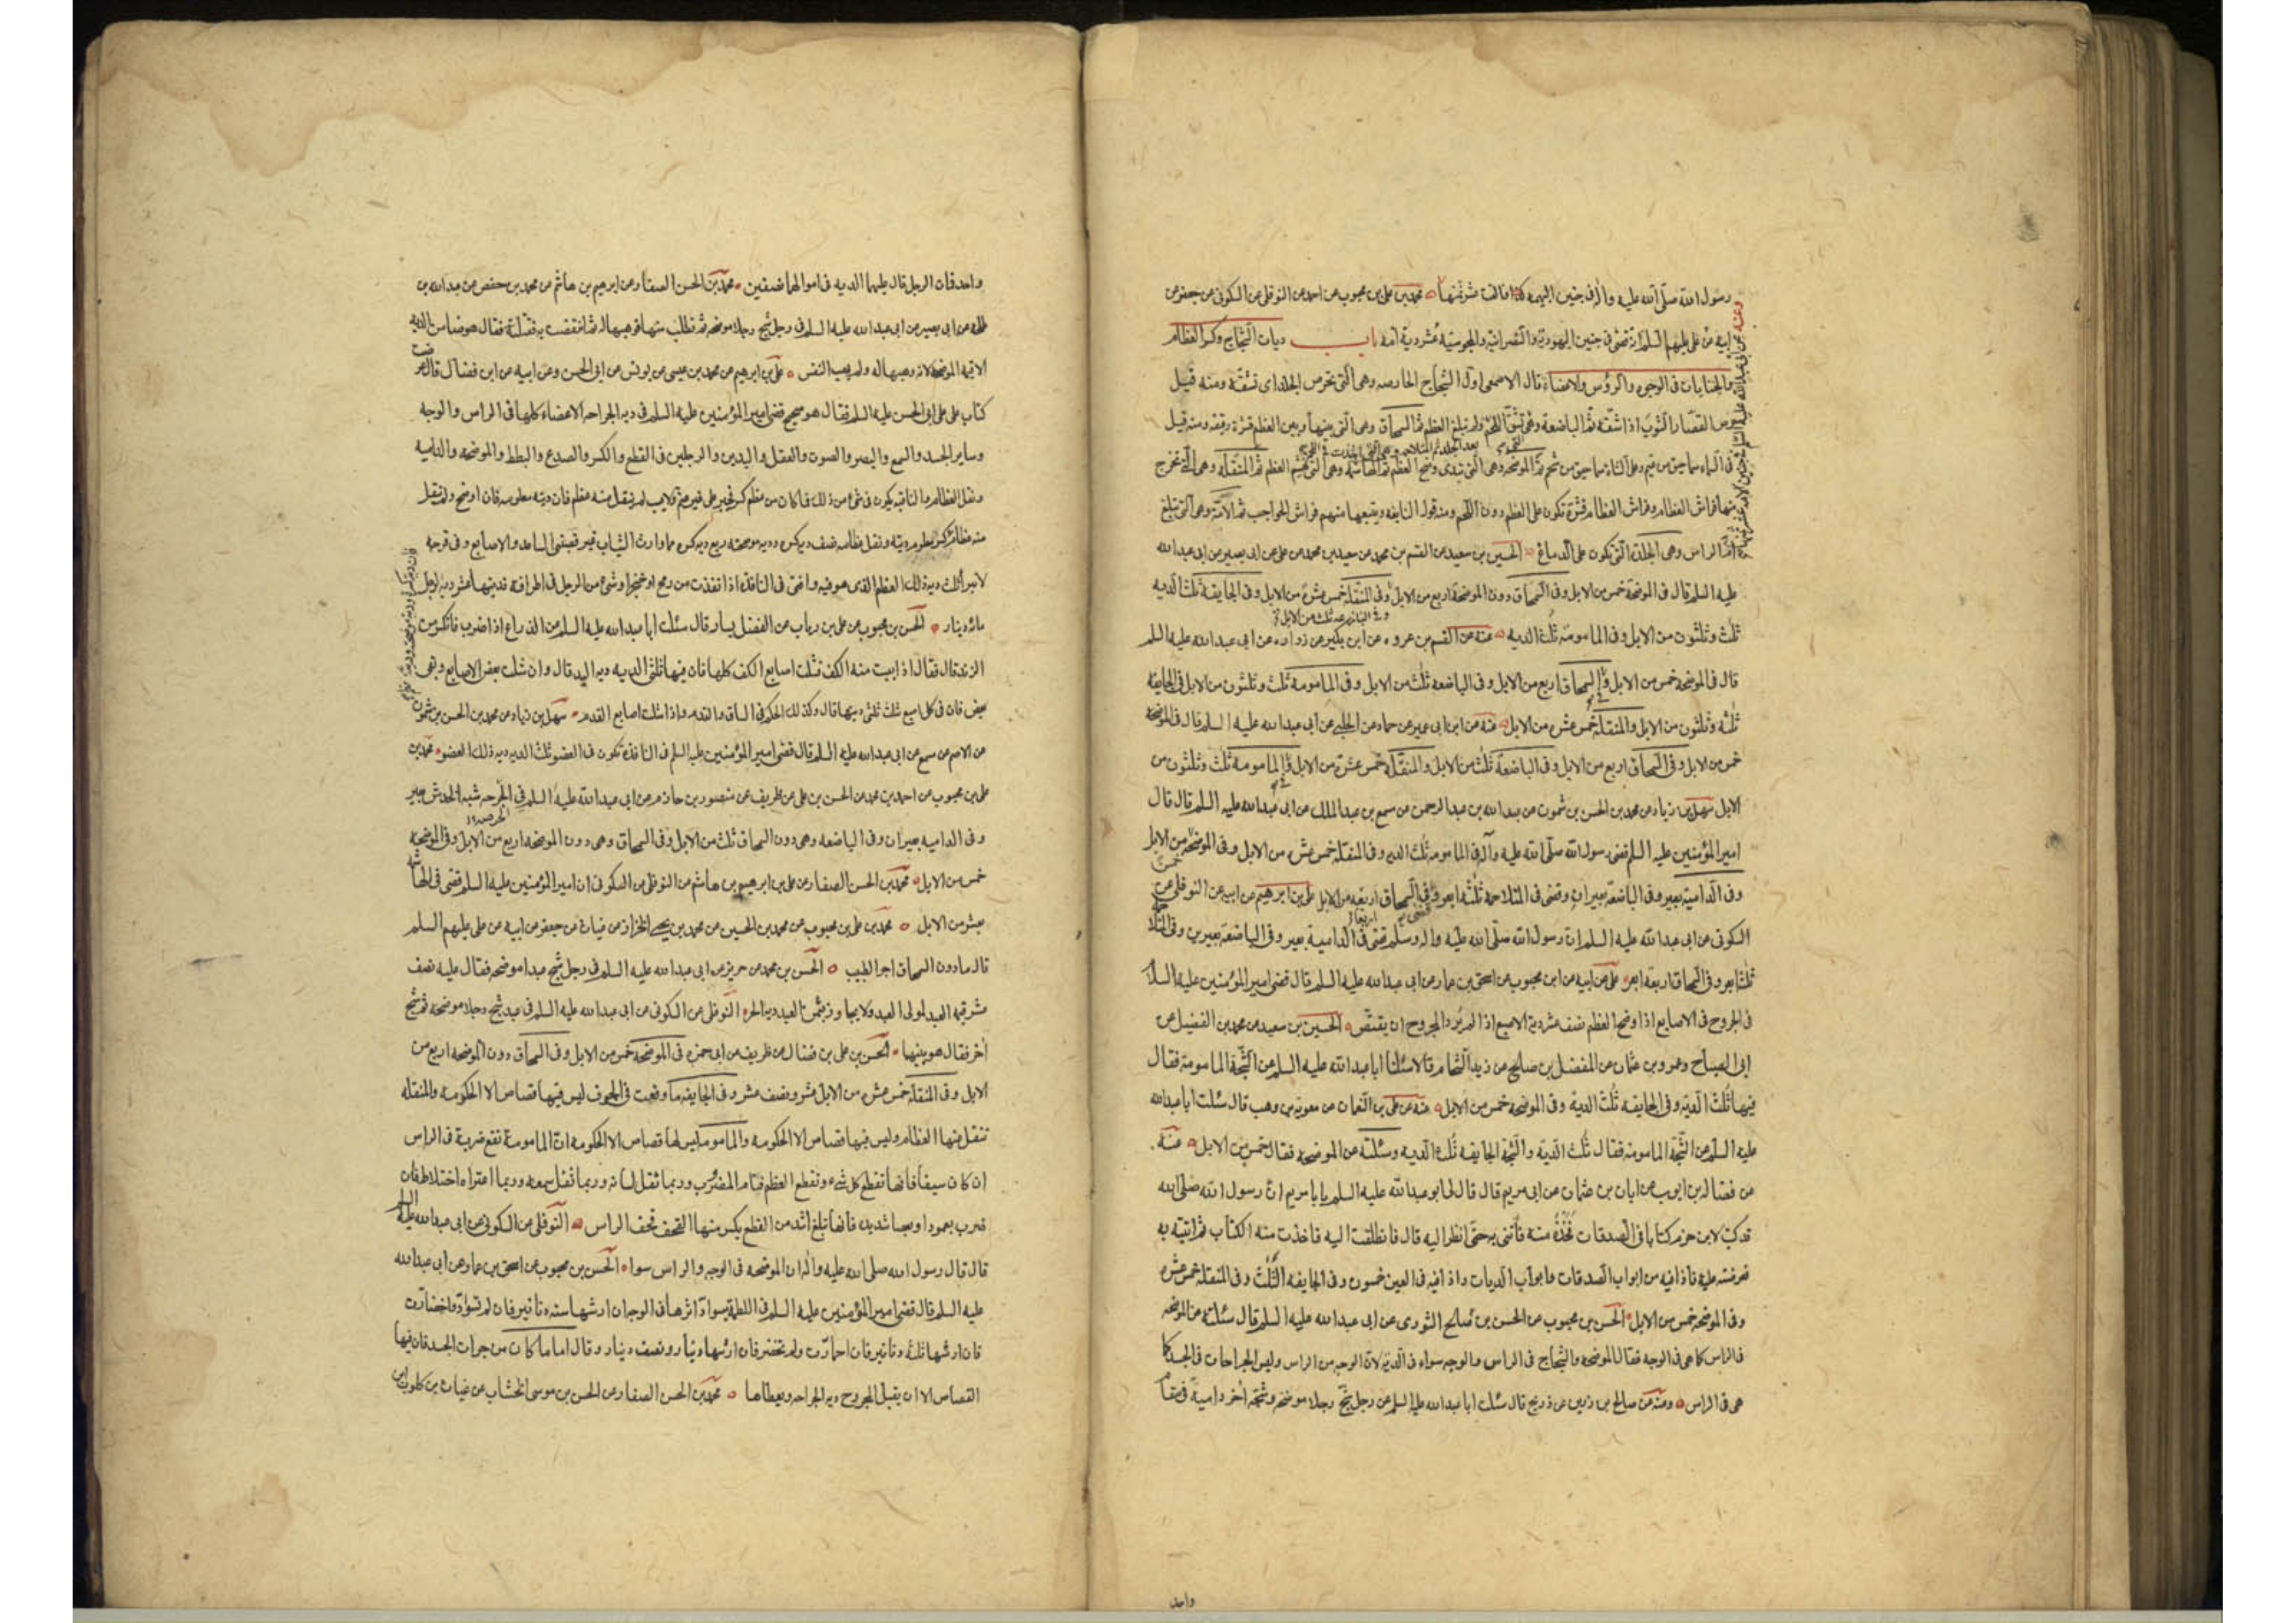 رسول الله صلى الله عليه واله في جنين البهيمة اذا القت عشر ثمنها محمد بن علي بن محبوب عن احمد عن النوفلي عن السكوني عن جعفر عن
ابيه عن علي عليهم السلم انه قضى في جنين اليهودية والنصرانية والمجوسية عشر دية امه باب ديات الشجاج وكسر العظام
والجنايات في الوجوه والرؤس والاعضاء قال الاصمعي اول الشجاج الحارصه وهي التي تحرص الجلد اى تشقه ومنه قيل
حرص القصار الثوب اذا شقه ثم الباضعة وهي تشق اللحم ولم تبلغ العظم ثم السمحاق وهي التي بينها وبين العظم قشرة رقيقه ومنه قيل
بعد الجلد ثم المتلاحمه وهي التي اخذت في اللحم
في السماء سماحيق من غيم وعلى الشاة سماحيق من شحم ثم الموضحه وهي التي تبدى وضح العظم ثم الهاشمه وهي التي تهشم العظم ثم المنقله وهي التي تخرج
منها فراش العظام وفراش العظام قشرة تكون على العظم دون اللحم ومنه قول النابغه ويتبعها منهم فراش الحواجب ثم الآمة وهي التي تبلغ
ام الراس وهي الجلدة التي تكون على الدماغ الحسين بن سعيد عن القسم بن محمد عن علي عن ابي بصير عن ابى عبدالله
عليه السلم قال في الموضحة خمس من الابل وفي السمحاق دون الموضحة اربع من الابل وفي المنقلة خمس عشرة من الابل وفي الجايفة ثلث الديه
ثلث وثلثون من الابل وفي المامومة ثلث الديه عنه عن القسم بن عروه عن ابن بكير عن زراره عن ابي عبدالله عليه السلم
قال في الموضحة خمس من الابل وفي السمحاق اربع من الابل وفي الباضعه ثلث من الابل وفي المامومة ثلث وثلثون من الابل وفي الجايفه
ثلثه وثلثون من الابل والمنقلة خمس عشر من الابل عنه عن ابن ابي عمير عن حماد عن الحلبي عن ابي عبدالله عليه السلم قال في الموضحة
خمس من الابل وفي السمحاق اربع من الابل وفي الباضعة ثلث من الابل والمنقلة خمس عشرة من الابل وفي المامومة ثلث وثلثون من
الابل سهل بن زياد عن محمد بن الحسن بن شمون عن عبدالله بن عبدالرحمن عن مسمع بن عبدالملك عن ابي عبدالله عليه السلم قال قال
امير المؤمنين عليه السلم قضى رسول الله صلى الله عليه وآله في المامومة ثلث الديه وفي المنقلة خمس عشره من الابل وفي الموضحة خمس من الابل
وفي الدامية بعير وفي الباضعة بعيران وقضى في المتلاحمة ثلثه ابعره وفي السمحاق اربعه من الابل علي بن ابرهيم عن ابيه عن النوفلي عن
السكوني عن ابي عبدالله عليه السلم ان رسول الله صلى الله عليه واله وسلم قضى في الدامية بعير وفي الباضعة بعيرين وفي المتلاحمة
ثلثة ابعره وفي السمحاق اربعة ابعر علي عن ابيه عن ابن محبوب عن اسحق بن عمار عن ابي عبدالله عليه السلم قال قضى امير المؤمنين عليه السلم
في الجروح في الاصابع اذا اوضح العظم نصف عشر دية الاصبع اذا لم يرد المجروح ان يقتص الحسين بن سعيد عن محمد بن الفضيل عن
ابي الصباح وعمرو بن عثمان عن المفضل بن صالح عن زيد الشحام قالا سئلنا ابا عبدالله عليه السلم عن الشجة المامومة فقال
فيها ثلث الدية وفي الجايفه ثلث الدية وفي الموضحة خمس من الابل عنه عن علي بن النعمان عن معويه بن وهب قال سئلت ابا عبدالله
عليه السلم عن الشجة المامومة فقال ثلث الدية والشجة الجايفه ثلث الديه وسئلته عن الموضحة فقال خمس من الابل عنه
عن فضالة بن ايوب عن ابان بن عثمان عن ابي مريم قال قال لي ابو عبدالله عليه السلم يا با مريم ان رسول الله صلى الله
قد كتب لابن حزم كتابا في الصدقات فخذه منه فأتني به حتى انظر اليه قال فانطلقت اليه فاخذت منه الكتاب ثم اتيته به
فعرضته عليه فاذا فيه من ابواب الصدقات وابواب الديات واذا فيه في العين خمسون وفي الجايفه الثلث وفي المنقله خمس عشره
وفي الموضحة خمس من الابل الحسن بن محبوب عن الحسن بن صالح الثوري عن ابي عبدالله عليه السلم قال سئلته عن الموضحه
في الراس كما هي في الوجه فقال الموضحه والشجاج في الراس والوجه سواء في الديه لان الوجه من الراس وليس الجراحات في الجسد كما
هي في الراس وعنه عن صالح بن رزين عن ذريح قال سئلت ابا عبدالله عليه السلم عن رجل شج رجلا موضحه وشجه اخر دامية في مقام
واحد
واحد فمات الرجل قال عليهما الديه في اموالهما نصفين محمد بن الحسن الصفار عن ابرهيم بن هاشم عن محمد بن حفص عن عبدالله بن
طلحه عن ابي بصير عن ابي عبدالله عليه السلم في رجل شج رجلا موضحه ثم تطلب منها فوهبها له ثم انتقضت به فقتلته فقال هو ضامن للديه
الا قيمة الموضحه لانه وهبها له ولم يهب النفس علي بن ابرهيم عن محمد بن عيسى عن يونس عن ابي الحسن وعن ابيه عن ابن فضال قال عرضت
كتاب علي على ابي الحسن عليه السلم فقال هو صحيح قضى امير المؤمنين عليه السلم في ديه الجراحه الاعضاء كلها في الراس والوجه
وساير الجسد والسمع والبصر والصوت والعقل واليدين والرجلين في القطع والكسر والصدع والبطط والموضحه والداميه
ونقل العظام والناقبه يكون في شئ من ذلك فما كان من عظم كسر فجبر على غير عثم ولا عيب لم ينقل منه عظم فان ديته معلومه فان اوضح ولم ينقل
منه عظام فديه كسره وديه موضحته ربع ديه كسره مما وارت الثياب غير قصبتي الساعد والاصابع وفي قرحه
لا تبرأ ثلث دية ذلك العظم الذي هو فيه وافتى في النافذه اذا نفذت من رمح او خنجر في شئ من الرجل في اطرافه فديتها عشر ديه الرجل
مائة دينار الحسن بن محبوب عن علي بن رياب عن الفضيل بن يسار قال سئلت ابا عبدالله عليه السلم عن الذراع اذا ضرب فانكسر من
الزند قال فقال اذا يبست منه الكف فشلت اصابع الكف كلها فان فيها ثلثي الديه ديه اليد قال وان شلت بعض الاصابع وبقي
بعض فان في كل اصبع شلت ثلثي ديتها قال وكذلك الحكم في الساق والقدم واذا شلت اصابع القدم سهل بن زياد عن محمد بن الحسن بن شمون
عن الاصم عن مسمع عن ابي عبدالله عليه السلم قال قضى امير المؤمنين عليه السلم في النافذة تكون في العضو ثلث الديه ديه ذلك العضو محمد بن
علي بن محبوب عن احمد بن محمد عن الحسن بن علي عن ظريف عن منصور بن حازم عن ابي عبدالله عليه السلم في الحرصه شبه الخدش بعير
وفي الداميه بعيران وفي الباضعه وهي دون السمحاق ثلث من الابل وفي السمحاق وهي دون الموضحه اربع من الابل وفي الموضحه
خمس من الابل محمد بن الحسن الصفار عن علي بن ابرهيم بن هاشم عن النوفلي عن السكوني ان امير المؤمنين عليه السلم قضى في الهاشمه
بعشر من الابل محمد بن علي بن محبوب عن محمد بن الحسين عن محمد بن يحيى الخزاز عن غياث عن جعفر عن ابيه عن علي عليهم السلم
قال ما دون السمحاق اجر الطبيب الحسن بن محمد عن حريز عن ابي عبدالله عليه السلم في رجل شج عبدا موضحه فقال عليه نصف
عشر قيمة العبد لمولى العبد ولا يجاوز بثمن العبد دية الحر النوفلي عن السكوني عن ابي عبدالله عليه السلم في عبد شج رجلا موضحه ثم شج
اخر فقال هو بينهما الحسن بن علي بن فضال عن ظريف عن ابي حمزه في الموضحة خمس من الابل وفي السمحاق دون الموضحه اربع من
الابل وفي المنقلة خمس عشره من الابل عشر ونصف عشر وفي الجايفه ما وقعت في الجوف ليس فيها قصاص الا الحكومه والمنقله
تنقل منها العظام وليس فيها قصاص الا الحكومه والمامومه ليس لها قصاص الا الحكومه ان المامومة تقع ضربة في الراس
ان كان سيفا فانها تقطع كل شئ وتقطع العظم فتام المضروب وربما ثقل لسانه وربما ثقل سمعه وربما اعتراه اختلاط فان
ضرب بعمود او بعصا شديدة فانها تبلغ اشد من القطع يكسر منها القحف قحف الراس النوفلي عن السكوني عن ابي عبدالله عليه السلم
قال قال رسول الله صلى الله عليه واله ان الموضحه في الوجه والراس سواء الحسن بن محبوب عن اسحق بن عمار عن ابي عبدالله
عليه السلم قال قضى امير المؤمنين عليه السلم في اللطمة يسود اثرها في الوجه ان ارشها سته دنانير فان لم تسود واخضارت
فان ارشها ثلثة دنانير فان احمارت ولم تخضر فان ارشها دينار ونصف دينار وقال اما ما كان من جراحات الجسد فان فيها
القصاص الا ان يقبل المجروح ديه الجراحه ويعطاها محمد بن الحسن الصفار عن الحسن بن موسى الخشاب عن غياث بن كلوب عن